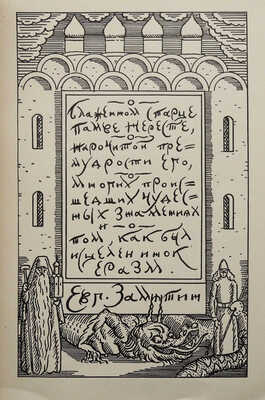 О
блаженном старце
Памве Нересте,
О
нарочитой пре=
мудрости его,
О
многих прои=
шедших чудес=
ных знамениях
и
О
том, как был
исцелен инок
Еразм
Евг. Замятин